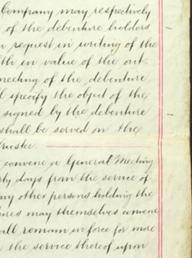 Company may respectively
of the debenture holders
request in writing of the
in value of the out
meeting of the debenture
specify the object of the
signed by the debenture
shall be served on the
Trustee
convene a General Meeting
days from the service of
any other persons holding the
may themselves convene
remain in force for more
the service thereof upon